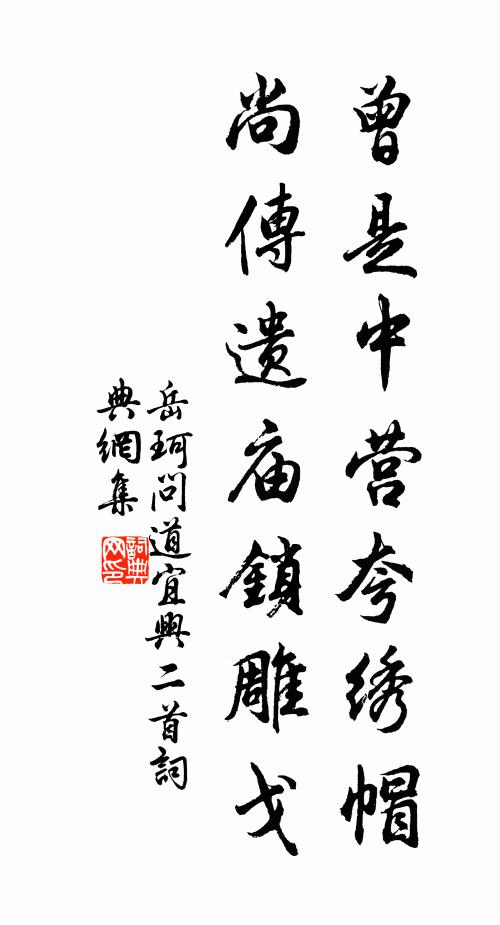 曾是中营夸绣帽
尚傳遗庙鎖雕戈
岳珂問道宜興二首詞
典網集
詞典
网印